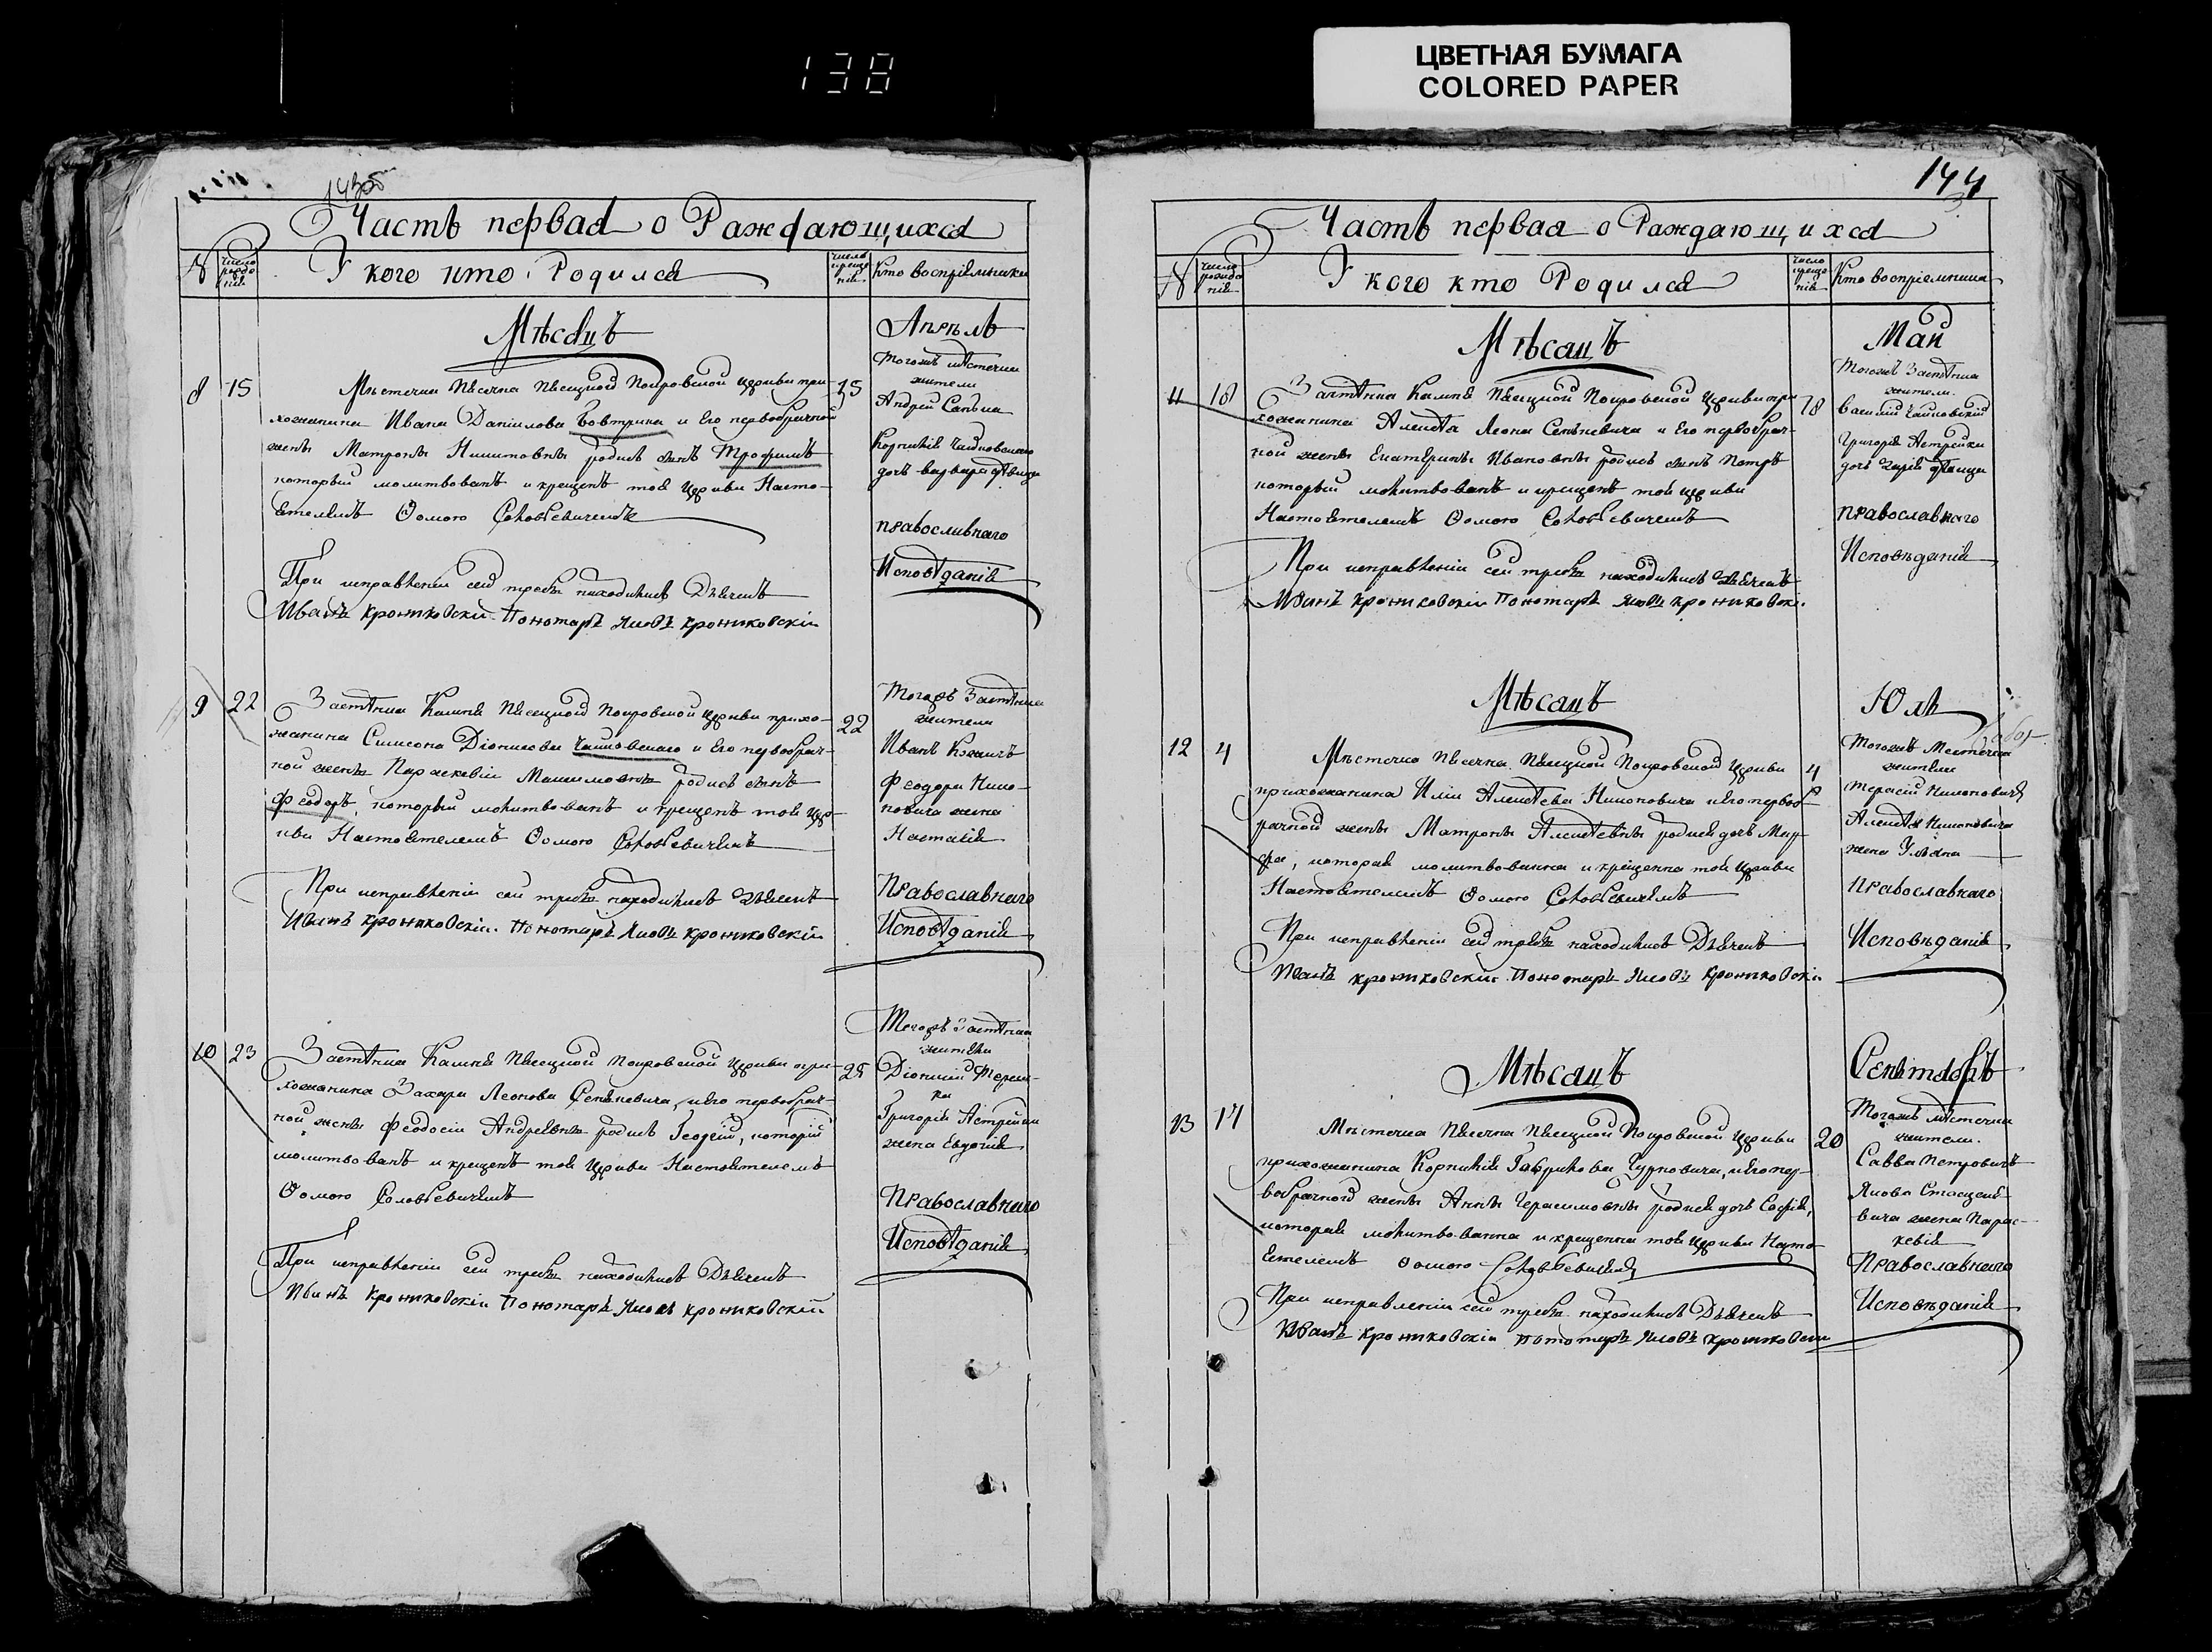 138
ЦВЕТНАЯ БУМАГА
COLORED PAPER
143об
Часть первая о Раждающихся
№
число рождения
У кого кто Родился
число крещения
Кто воспріемники
Мѣсяцъ
Апрѣль
8 15
Мѣстечка Пѣсочна Пѣсоцкой Покровской Церкви при-
хожанина Ивана Даніилова и Его первобрачной
жены Матроны родись сынъ Трофимъ
который молитвованъ и крещенъ той Церкви Насто-
ятелемъ Ѳомою Соловьевичемъ
При исправленіи сей требы находились Дьячекъ
Иванъ Крониковскій Пономарь Яковъ Крониковскій
15
Тогожъ мѣстечка
жители
Андрей Сапѣга
Корнилія
дочь Варвара дѣвица
православнаго
Исповѣданія
9 22
Застѣнка Камня Пѣсоцкой Покровской Церкви прихо-
жанина Симеона Діонисова и Его первобрач-
ной жены Параскевіи Максимовны родись сынъ
Феодоръ, который молитвованъ и крещенъ той Цер-
кви Настоятелемъ Ѳомою Соловьевичемъ
При исправленіи сей требы находились Дьячекъ
Иванъ Крониковскій Пономарь Яковъ Крониковскій
22
Тогожъ Застѣнка
жители
Иванъ
Феодора Нико-
новича жена
Наталія
Православнаго
Исповѣданія
10 23
Застѣнка Камня Пѣсоцкой Покровской Церкви при-
хожанина Захара Леонова Сенкевича, и Его первобрач-
ной жены Феодосіи Андреевны родись Георгій, которій
молитвованъ и крещенъ той Церкви Настоятелемъ
Ѳомою Соловьевичемъ
При исправленіи сей требы находились Дьячекъ
Иванъ Крониковскій Пономарь Яковъ Крониковскій
25
Тогожъ Застѣнка
жители
Діонисій Тереш-
ка
Григорія Астрейки
жена Евдокія
Православнаго
Исповѣданія
144
Часть первая о Раждающихся
№
число рожденія
У кого кто Родился
число крещенія
Кто воспріемники
Мѣсяцъ
Май
11 18
Застѣнка Камня Пѣсоцкой Покровской Церкви при-
хожанина Алексѣя Леона Сенкевича и Его первобрач-
ной жены Екатерины Ивановны родись сынъ Петръ
который молитвованъ и крещенъ той церкви
Настоятелемъ Ѳомою Соловьевичемъ
При исправленіи сей требы находились Дьячекъ
Иванъ Крониковскій Пономарь Яковъ Крониковскі
18
Тогожъ Застѣнка
жители
Василій
Григорія Астрейки
дочь дѣвица
православнаго
Исповѣданія
Мѣсяцъ
Юль
12 4
Мѣстечко Пѣсочна Пѣсоцкой Покровской Церкви
прихожанина Иліи Алексѣева Никоновича и Его первоб-
рачной жены Матроны Алексѣевны родися дочь Мар-
фа, которая молитвованна и крещенна той Церкви
Настоятелемъ Ѳомою Соловьевичемъ
При исправленіи сей требы находились Дьячекъ
Иванъ Крониковскій Пономарь Яковъ Крониковскі
4
Тогожъ Местечка
жители
Терасій Никоновичъ
Алексѣя Никоновича
жена Ульяна
православнаго
Исповѣданія
Мѣсяцъ
Сентябрь
13 17
Мѣстечка Пѣсочна Пѣсоцкой Покровской Церкви
прихожанина Корнилія Гаврилова Чурновича, и Его пер-
вобрачной жены Анны Герасимовны родися дочь Софія,
которая молитвованна и крещенна той Церкви Насто-
ятелемъ Ѳомою Соловьевичемъ
При исправленіи сей требы находились Дьячекъ
Иванъ Крониковскій Пономарь Яковъ Крониковскі
20
Тогожъ мѣстечка
жители
Савва Петровичъ
Якова
вича жена Парас-
кевія
Православнаго
Исповѣданія